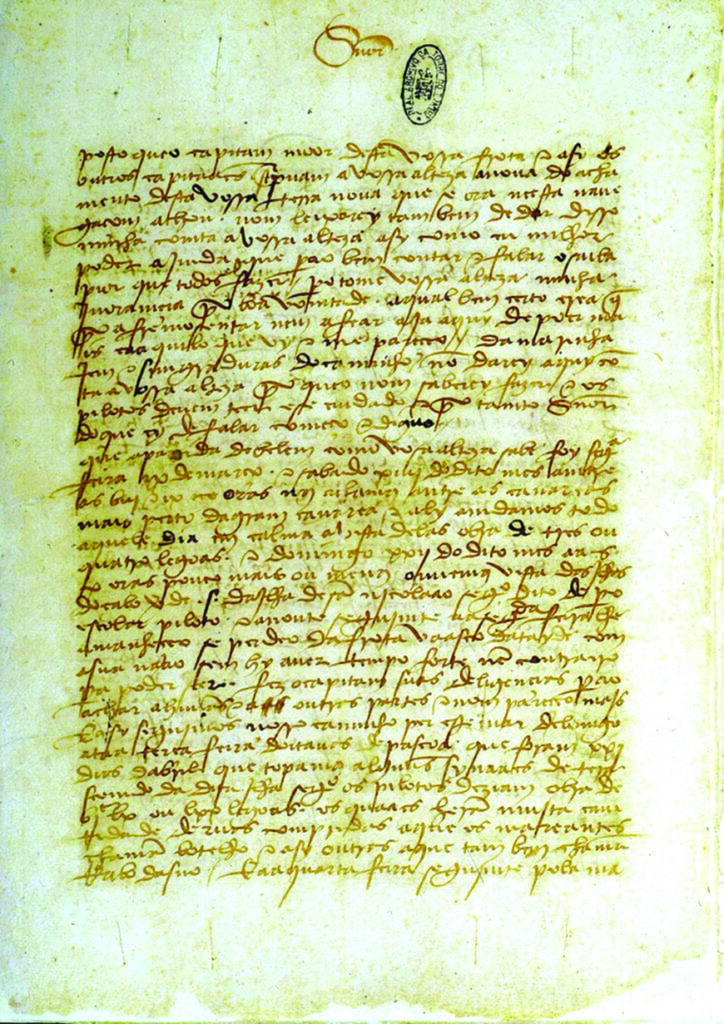 Snor
posto queo capitam moor desta vossa frota e asy os
outros capitaães sprevam a vossa alteza a nova do acha
mento desta vossa terra nova que se ora neesta nave
gaçom achou. nom leixarey tambem de dar disso
minha comta avossa alteza asy como eu milhor
poder ajmda que pera o bem contar e falar o saiba
pior que todos fazer. pero tome vossa alteza minha
jnoramçia por boa vomtade. aqual bem çerto crea q
por afremosentar nem afear aja aquy de poer mais
ca aquilo que vy e me pareçeo / damarinha
jem e simgraduras docaminho nõ darey aquy cõ
ta a vossa alteza por queo nom saberey fazer e os
pilotos devem teer ese cuidado e por tanto Snor
do que ey de falar começo e diguo /
que apartida debelem como vosa alteza sabe foy segª
feira ix demarço. e sabado xiiij do dito mes amtre
as biij e ix oras nos achamos amtre as canareas
mais perto da gram canarea e aly amdamos todo
aquele dia em calma avista delas obra de tres ou
quatro legoas. e domingo xxij do dito mes aas
x oras pouco mais ou menos ouvemos vista das jlhas
docabo verde. s. dajlha desã njcolaao segº dito de pº
escolar piloto. e anoute segujmte aasegª feira lhe
amanheçeo se perdeo dafrota vaasco datayde com
asua naao sem hy aver tempo forte nẽ contrairo
pera poder seer. fez o capitam suas deligençias pera o
achar ahuũas e aoutras partes e nom pareçeo majs
E asy segujmos nosso caminho per este mar delomgo
ataa terça feira doitavas de pascoa que foram xxj
dias dabril que topamos alguũs synaaes de tera
seemdo da dita jlha segº os pilotos deziam obra de
bjᶜ lx ou lxx legoas. os quaaes herã mujta cam
tidade dervas compridas aque os mareantes
chamã botelho e asy outras aque tambem chamã
Rabo dasno / E aaquarta feira segujmte pola ma